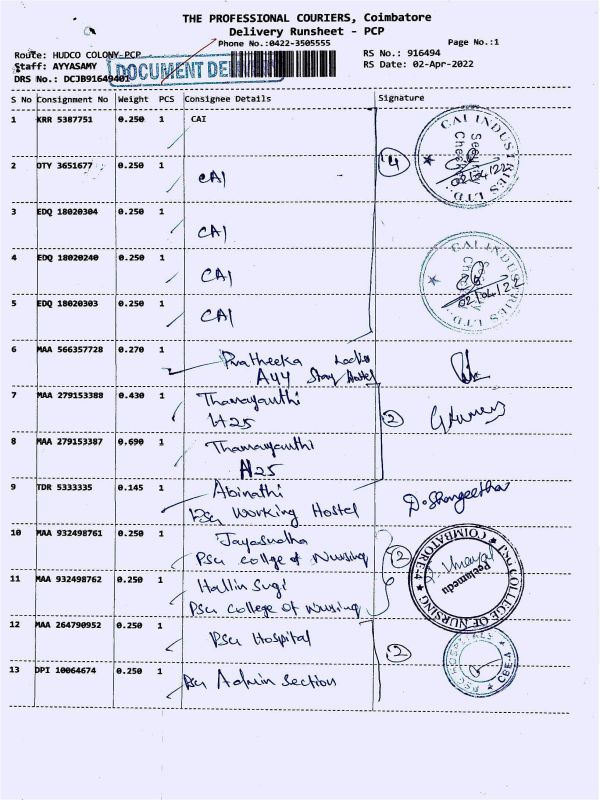 THE PROFESSIONAL COURIERS, Coimbatore
Delivery Runsheet - PCP
Phone No.:0422-3505555
Page No.:1
Route: HUDCO COLONY-PCP
RS No.: 916494
Staff: AYYASAMY
RS Date: 02-Apr-2022
DRS No.: DCJB91649401
DOCUMENT DEL
S No Consignment No Weight PCS Consignee Details Signature
1 KRR 5387751 0.250 1 CAI
2 OTY 3651677 0.250 1 CAI
4
CAI INDUSTRIES LTD.,
Security Checked
02/04/22
3 EDQ 18020304 0.250 1 CAI
4 EDQ 18020240 0.250 1 CAI
CAI INDUSTRIES LTD.,
02/04/22
5 EDQ 18020303 0.250 1 CAI
6 MAA 566357728 0.270 1 Pratheeka Ladies
Ayy Stay Hostel
7 MAA 279153388 0.430 1 Thamayanthi
H25
2
8 MAA 279153387 0.690 1 Thamayanthi
H25
9 TDR 5333335 0.145 1 Abinathi
PSG Working Hostel
D. Shangeetha
10 MAA 932498761 0.250 1 Jayasudha
PSG college of Nursing
2
COLLEGE OF NURSING
COIMBATORE-4
Peelamedu
11 MAA 932498762 0.250 1 Hallin Sugi
PSG college of Nursing
12 MAA 264790952 0.250 1 PSG Hospital
2
PSG HOSPITALS
CBE-4
13 DPI 10064674 0.250 1 PSG Admin Section